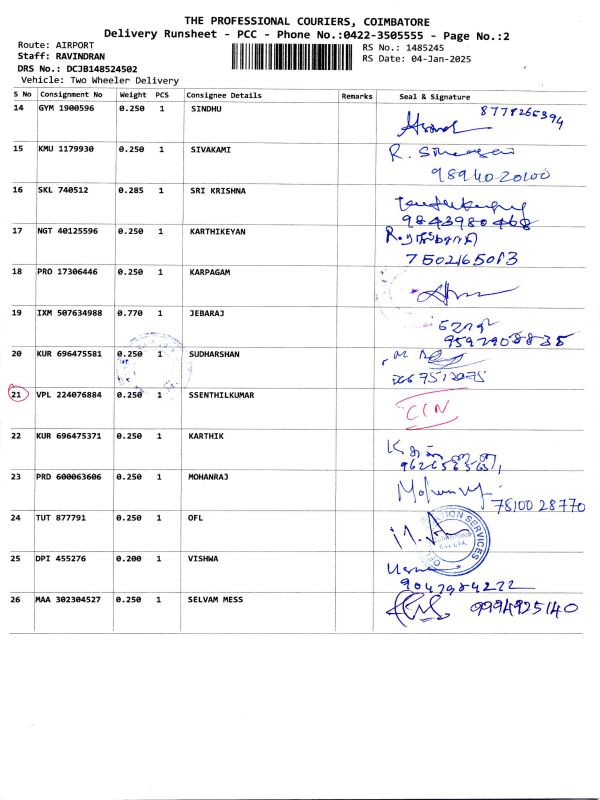 THE PROFESSIONAL COURIERS, COIMBATORE
Delivery Runsheet - PCC - Phone No.:0422-3505555 - Page No.:2
Route: AIRPORT
RS No.: 1485245
Staff: RAVINDRAN
RS Date: 04-Jan-2025
DRS No.: DCJB148524502
Vehicle: Two Wheeler Delivery
S No Consignment No Weight PCS Consignee Details Remarks Seal & Signature
14 GYM 1900596 0.250 1 SINDHU
15 KMU 1179930 0.250 1 SIVAKAMI R.
98940-20100
16 SKL 740512 0.285 1 SRI KRISHNA
9843980468
17 NGT 40125596 0.250 1 KARTHIKEYAN R.
7502165013
18 PRO 17306446 0.250 1 KARPAGAM
19 IXM 507634988 0.770 1 JEBARAJ
20 KUR 696475581 0.250 1 SUDHARSHAN
21 VPL 224076884 0.250 1 SSENTHILKUMAR CIN
22 KUR 696475371 0.250 1 KARTHIK
23 PRD 600063606 0.250 1 MOHANRAJ
78100 28770
24 TUT 877791 0.250 1 OFL
25 DPI 455276 0.200 1 VISHWA
9047984222
26 MAA 302304527 0.250 1 SELVAM MESS 9994925140